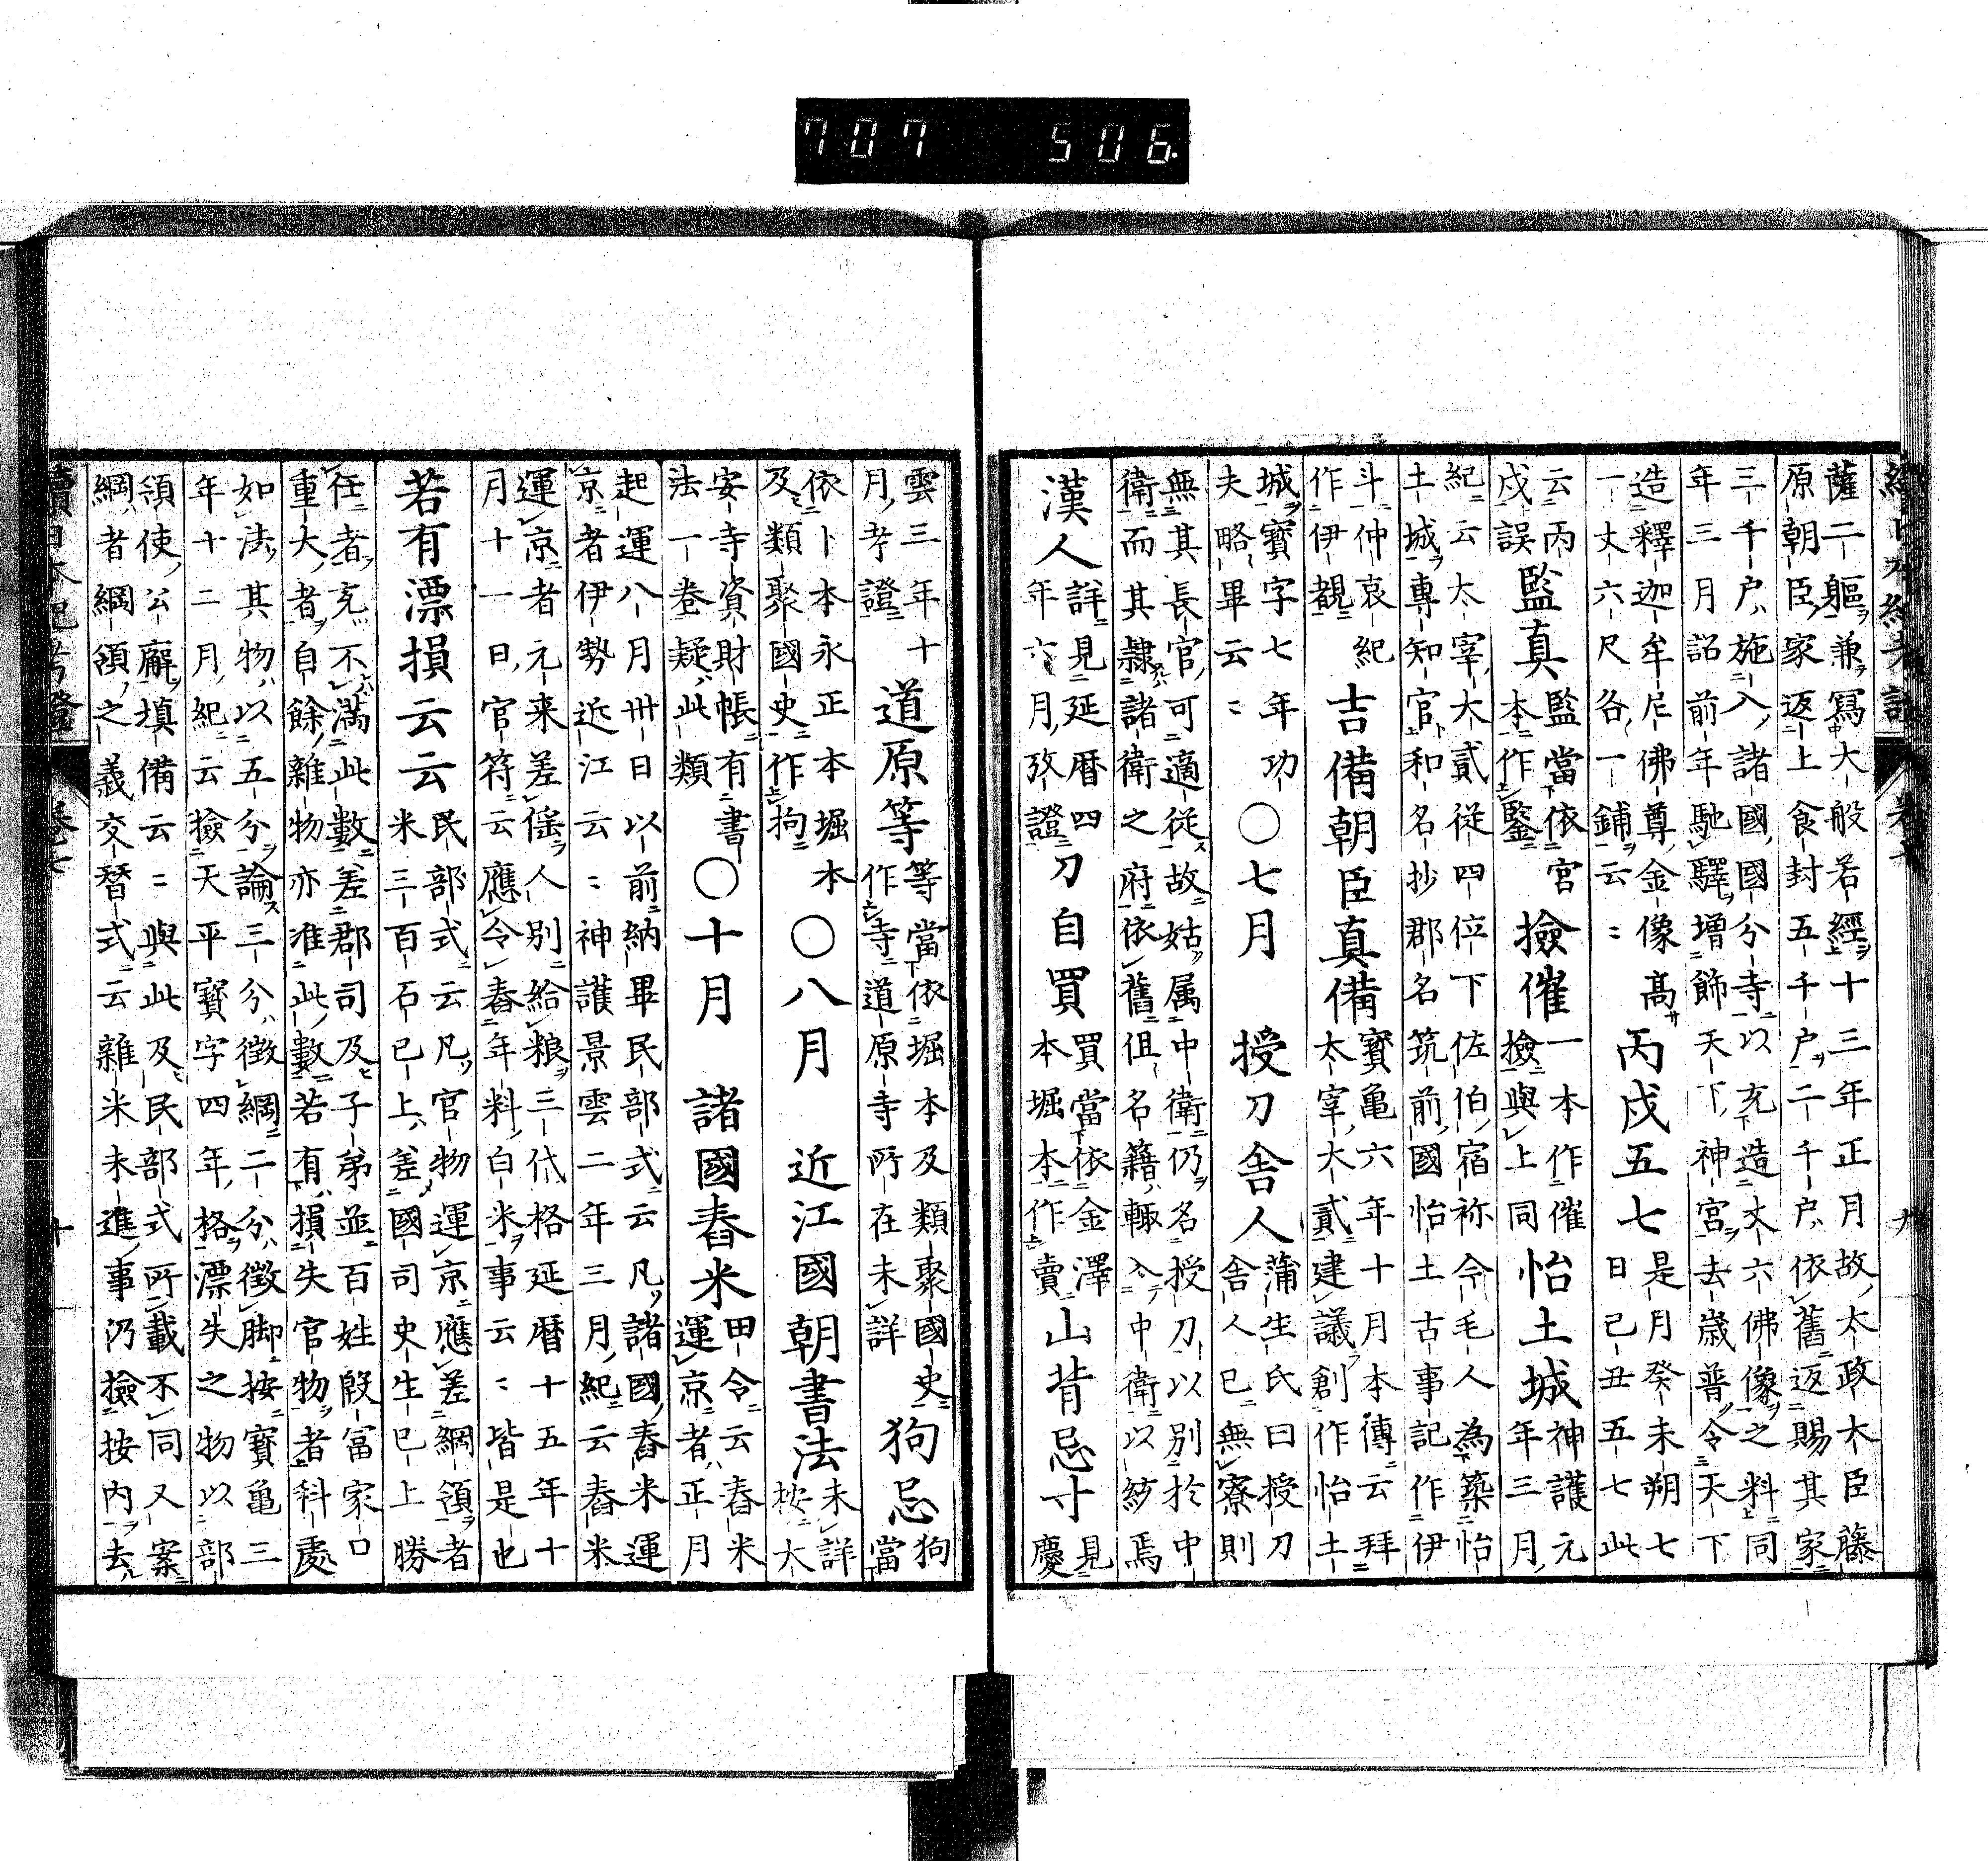 707 506
續日本紀考證 卷七 九
薩二軀兼寫大般若經十三年正月故太政大臣藤
原朝臣家返上食封五千戸二千戸依舊返賜其家
三千戸施入諸國國分寺以充造丈六佛像之料同
年三月詔前年馳驛增飾天下神宮去歳普令天下
造釋迦牟尼佛尊金像高
一丈六尺各一鋪云〻
丙戌五七
是月癸未朔七
日己丑五七此
云丙
戌誤
監真
監當依宮
本作鑒
撿催
一本作催
撿與上同
怡土城
神護元
年三月
紀云太宰大貳從四位下佐伯宿祢今毛人為築怡
土城專知官和名抄郡名筑前國怡土古事記作伊
斗仲哀紀
作伊覩
吉備朝臣真備
寶龜六年十月本傳云拜
太宰大貳建議創作怡土
城寶字七年功
夫略畢云〻
○七月
授刀舎人
蒲生氏曰授刀
舎人已無寮則
無其長官可適從故姑属中衛仍名授刀以別於中
衛而其隷諸衛之府依舊但名籍輙入中衛以紛焉
漢人
詳見延暦四
年六月攷證
刀自買
買當依金澤
本堀本作賣
山背忌寸
見
慶
雲三年十
月考證
道原等
等當依堀本及類聚國史
作寺道原寺所在未詳
狗忌
狗
當
依卜本永正本堀本
及類聚國史作拘
○八月
近江國朝書法
未詳
按大
安寺資財帳有書
法一卷疑此類
○十月
諸國舂米
田令云舂米
運京者正月
起運八月卅日以前納畢民部式云凡諸國舂米運
京者伊勢近江云〻神護景雲二年三月紀云舂米
運京者元来差傜人別給粮三代格延暦十五年十
月十一日官符云應令舂年料白米事云〻皆是也
若有漂損云云
民部式云凡官物運京應差綱領者
米三百石已上差國司史生已上勝
任者充不滿此數差郡司及子弟並百姓殷冨家口
重大者自餘雜物亦准此數若有損失官物者科處
如法其物以五分論三分徴綱二分徴脚按寶亀三
年十二月紀云撿天平寳字四年格漂失之物以部
領使公廨填備云〻與此及民部式所載不同又案
綱者綱領之義交替式云雜米未進事仍撿按内去
續日本紀考證 卷七 十